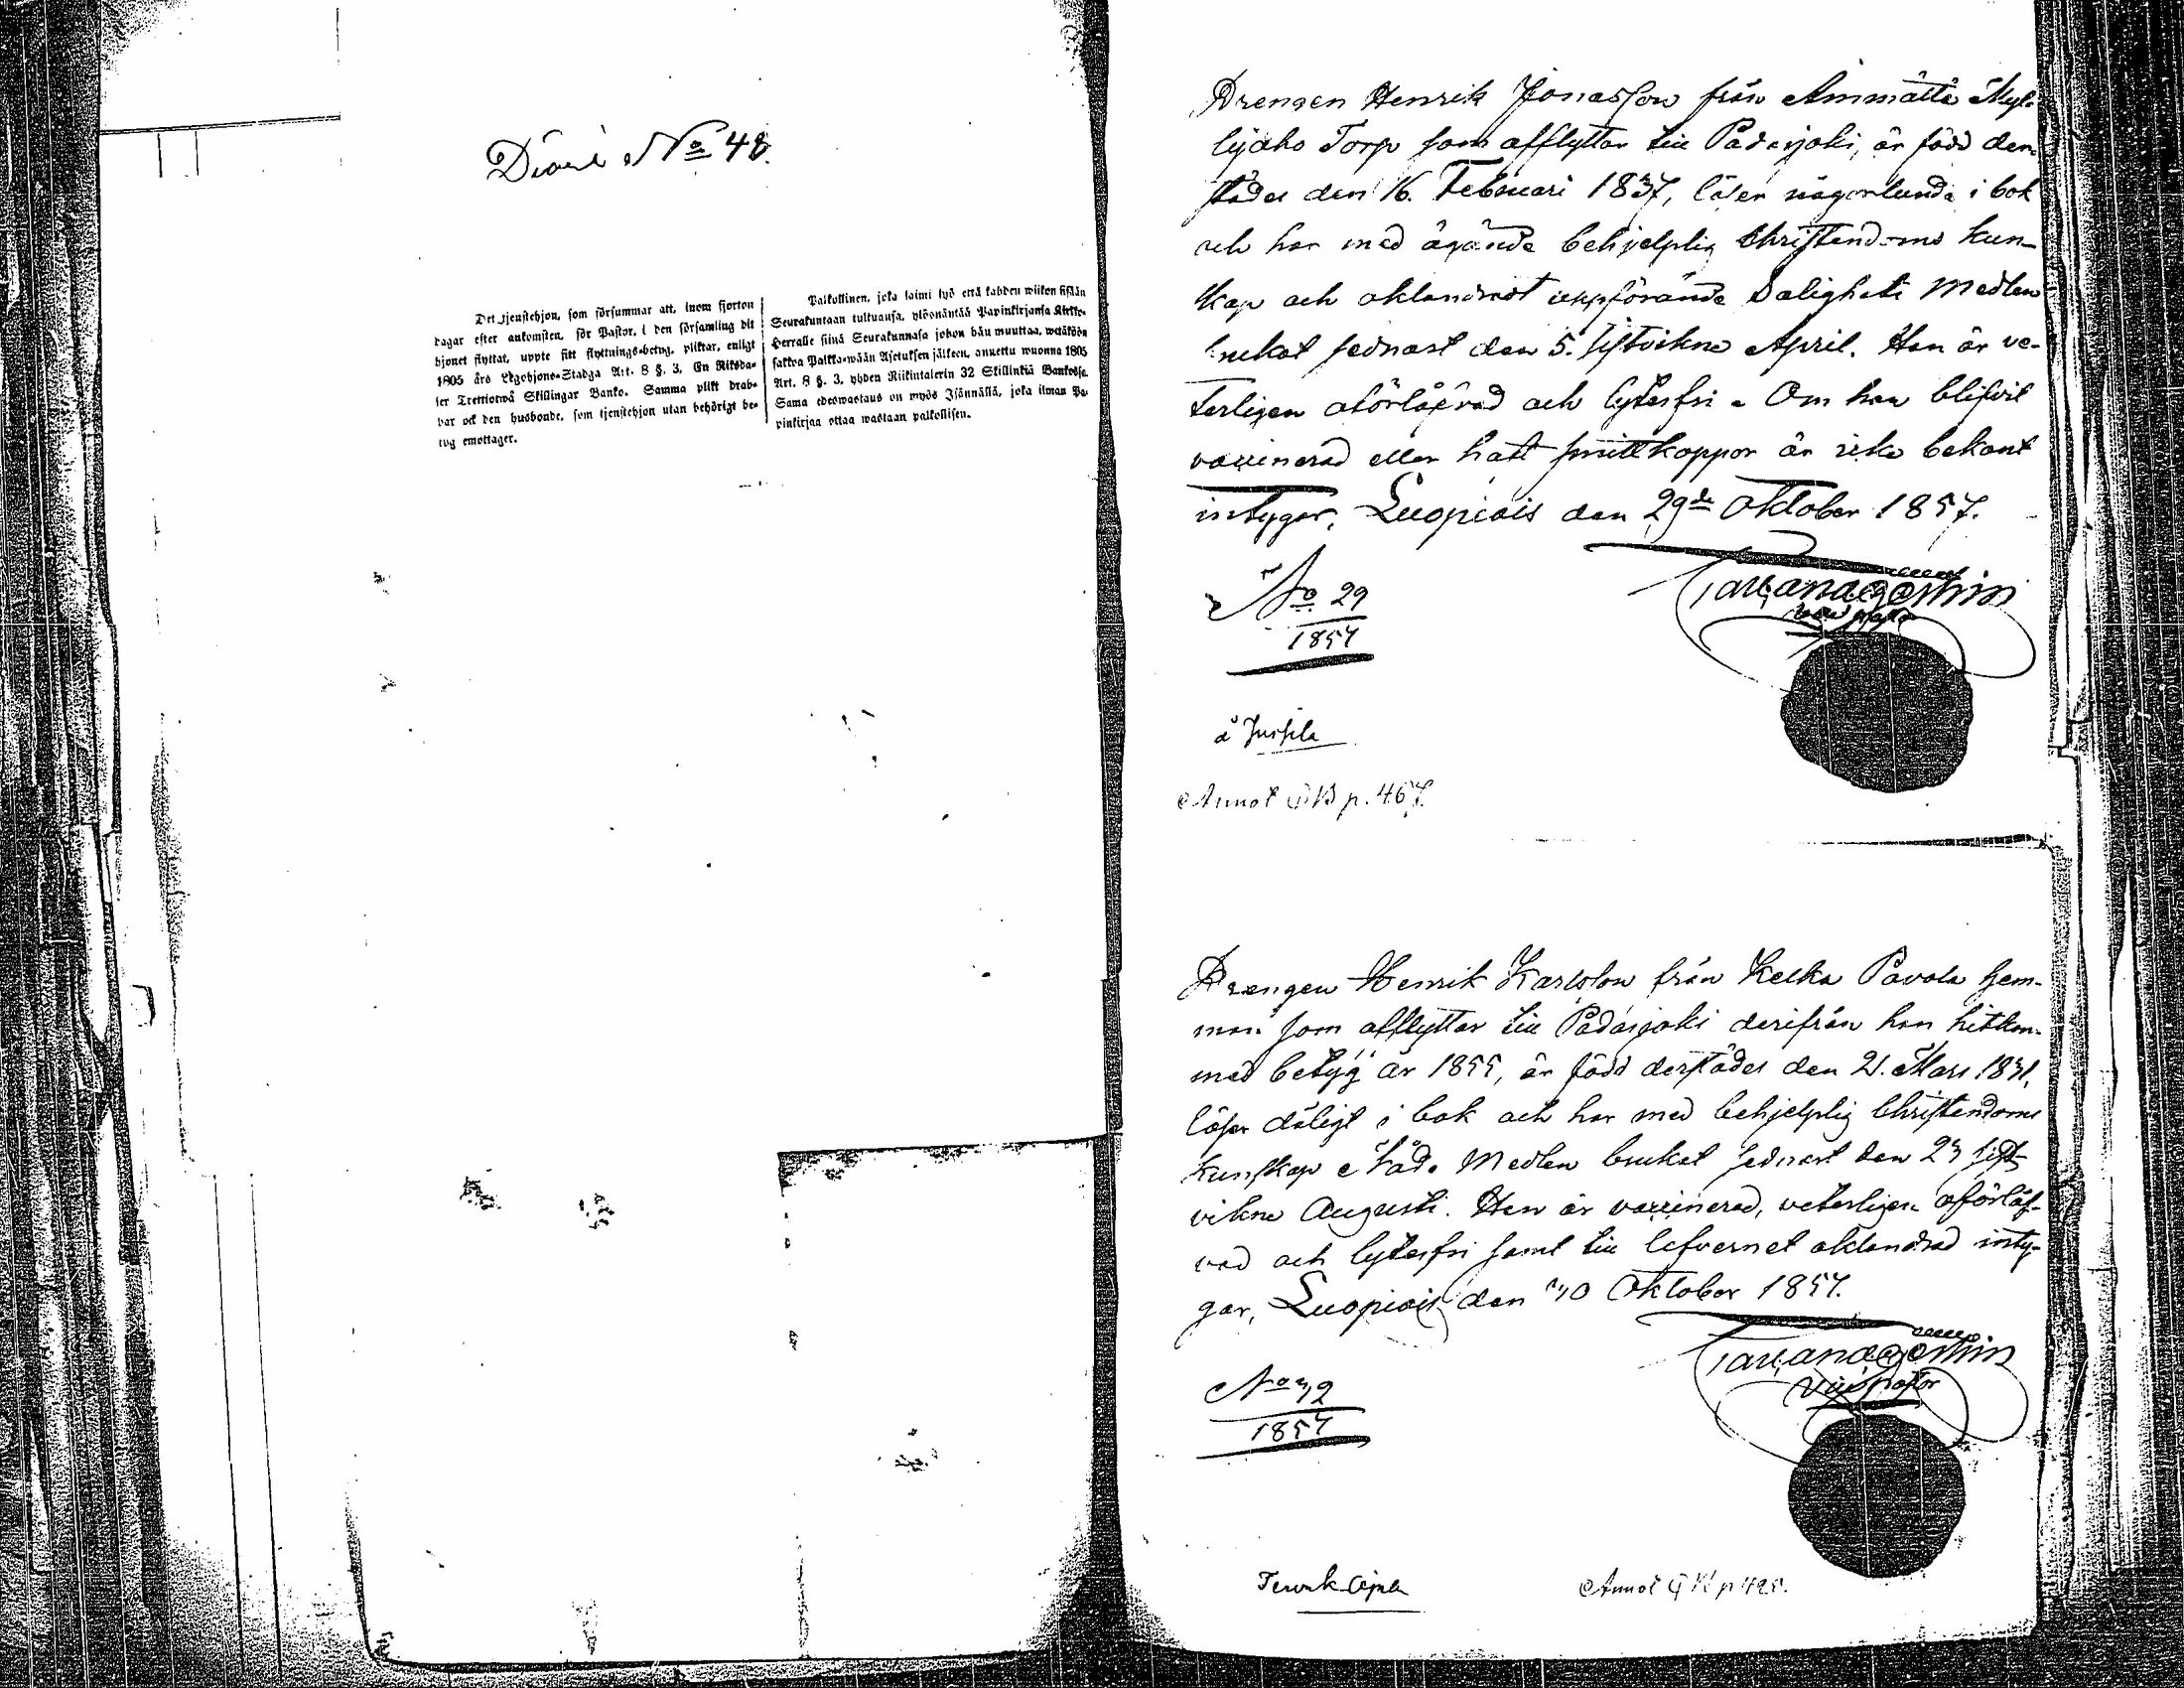 Diarie No 48.
Det tjenstehjon, som försummar att, inom fjorton
dagar efter ankomsten, för Pastor, i den församling dit
hjonet flyttat, uppte sitt flyttnings-betyg, pliktar, enligt
1805 års Legohjons-Stadga Art. 8 §. 3, En Riksda-
ler Trettiotwå Skillingar Banko. Samma plikt drab-
bar ock den husbonde, som tjenstehjon utan behörigt be-
tyg emottager.
Palkollinen, joka laimi lyö että kahden wiikon sisään
Seurakuntaan tultuansa, ylöonäyttää Papinkirjansa Kirkko-
Herralle siinä Seurakunnasa johon hän muuttaa, wetäköön
sakkoa Palkka-wään Asetuksen jälkeen, annettu wuonna 1805
Art. 8 §. 3, yhden Riikintalerin 32 Skillinkiä Bankossa.
Sama edeswastaus on myös Isännällä, joka ilman Pa-
pinkirjaa ottaa wastaan palkollisen.
Drengen Henrik Jonasson från Ämmätsä Myl-
lyaho Torp som afflyttar till Padasjoki, är född der-
städes den 16. Februari 1837, läser någorlunda i bok
och har med ägande behjelplig Christendoms kun-
skap och oklandradt uppförande Salighets Medlen
brukat sednast den 5. sistvikne April. Han är ve-
terligen oförlofvad och lytesfri. Om han blifvit
vaccinerad eller haft smittkoppor är icke bekant
intygar, Luopiois den 29de Oktober 1857.
No 29
1857
å Jussila
Annot KB p. 467.
Drengen Henrik Karlsson från Kelka Pavola hem-
man som afflyttar till Padasjoki derifrån han hitkom
med betyg år 1855, är född derstädes den 21. Mars 1831,
läser dåligt i bok och har med behjelplig Christendoms
kunskap Nåde Medlen brukat sednast den 23 sist-
vikne Augusti. Han är vaccinerad, veterligen oförlof-
vad och lytesfri samt till lefvernet oklandrad inty-
gar, Luopiois den 30 Oktober 1857.
Vice pastor
No 32
1857
Annot KB p 428.